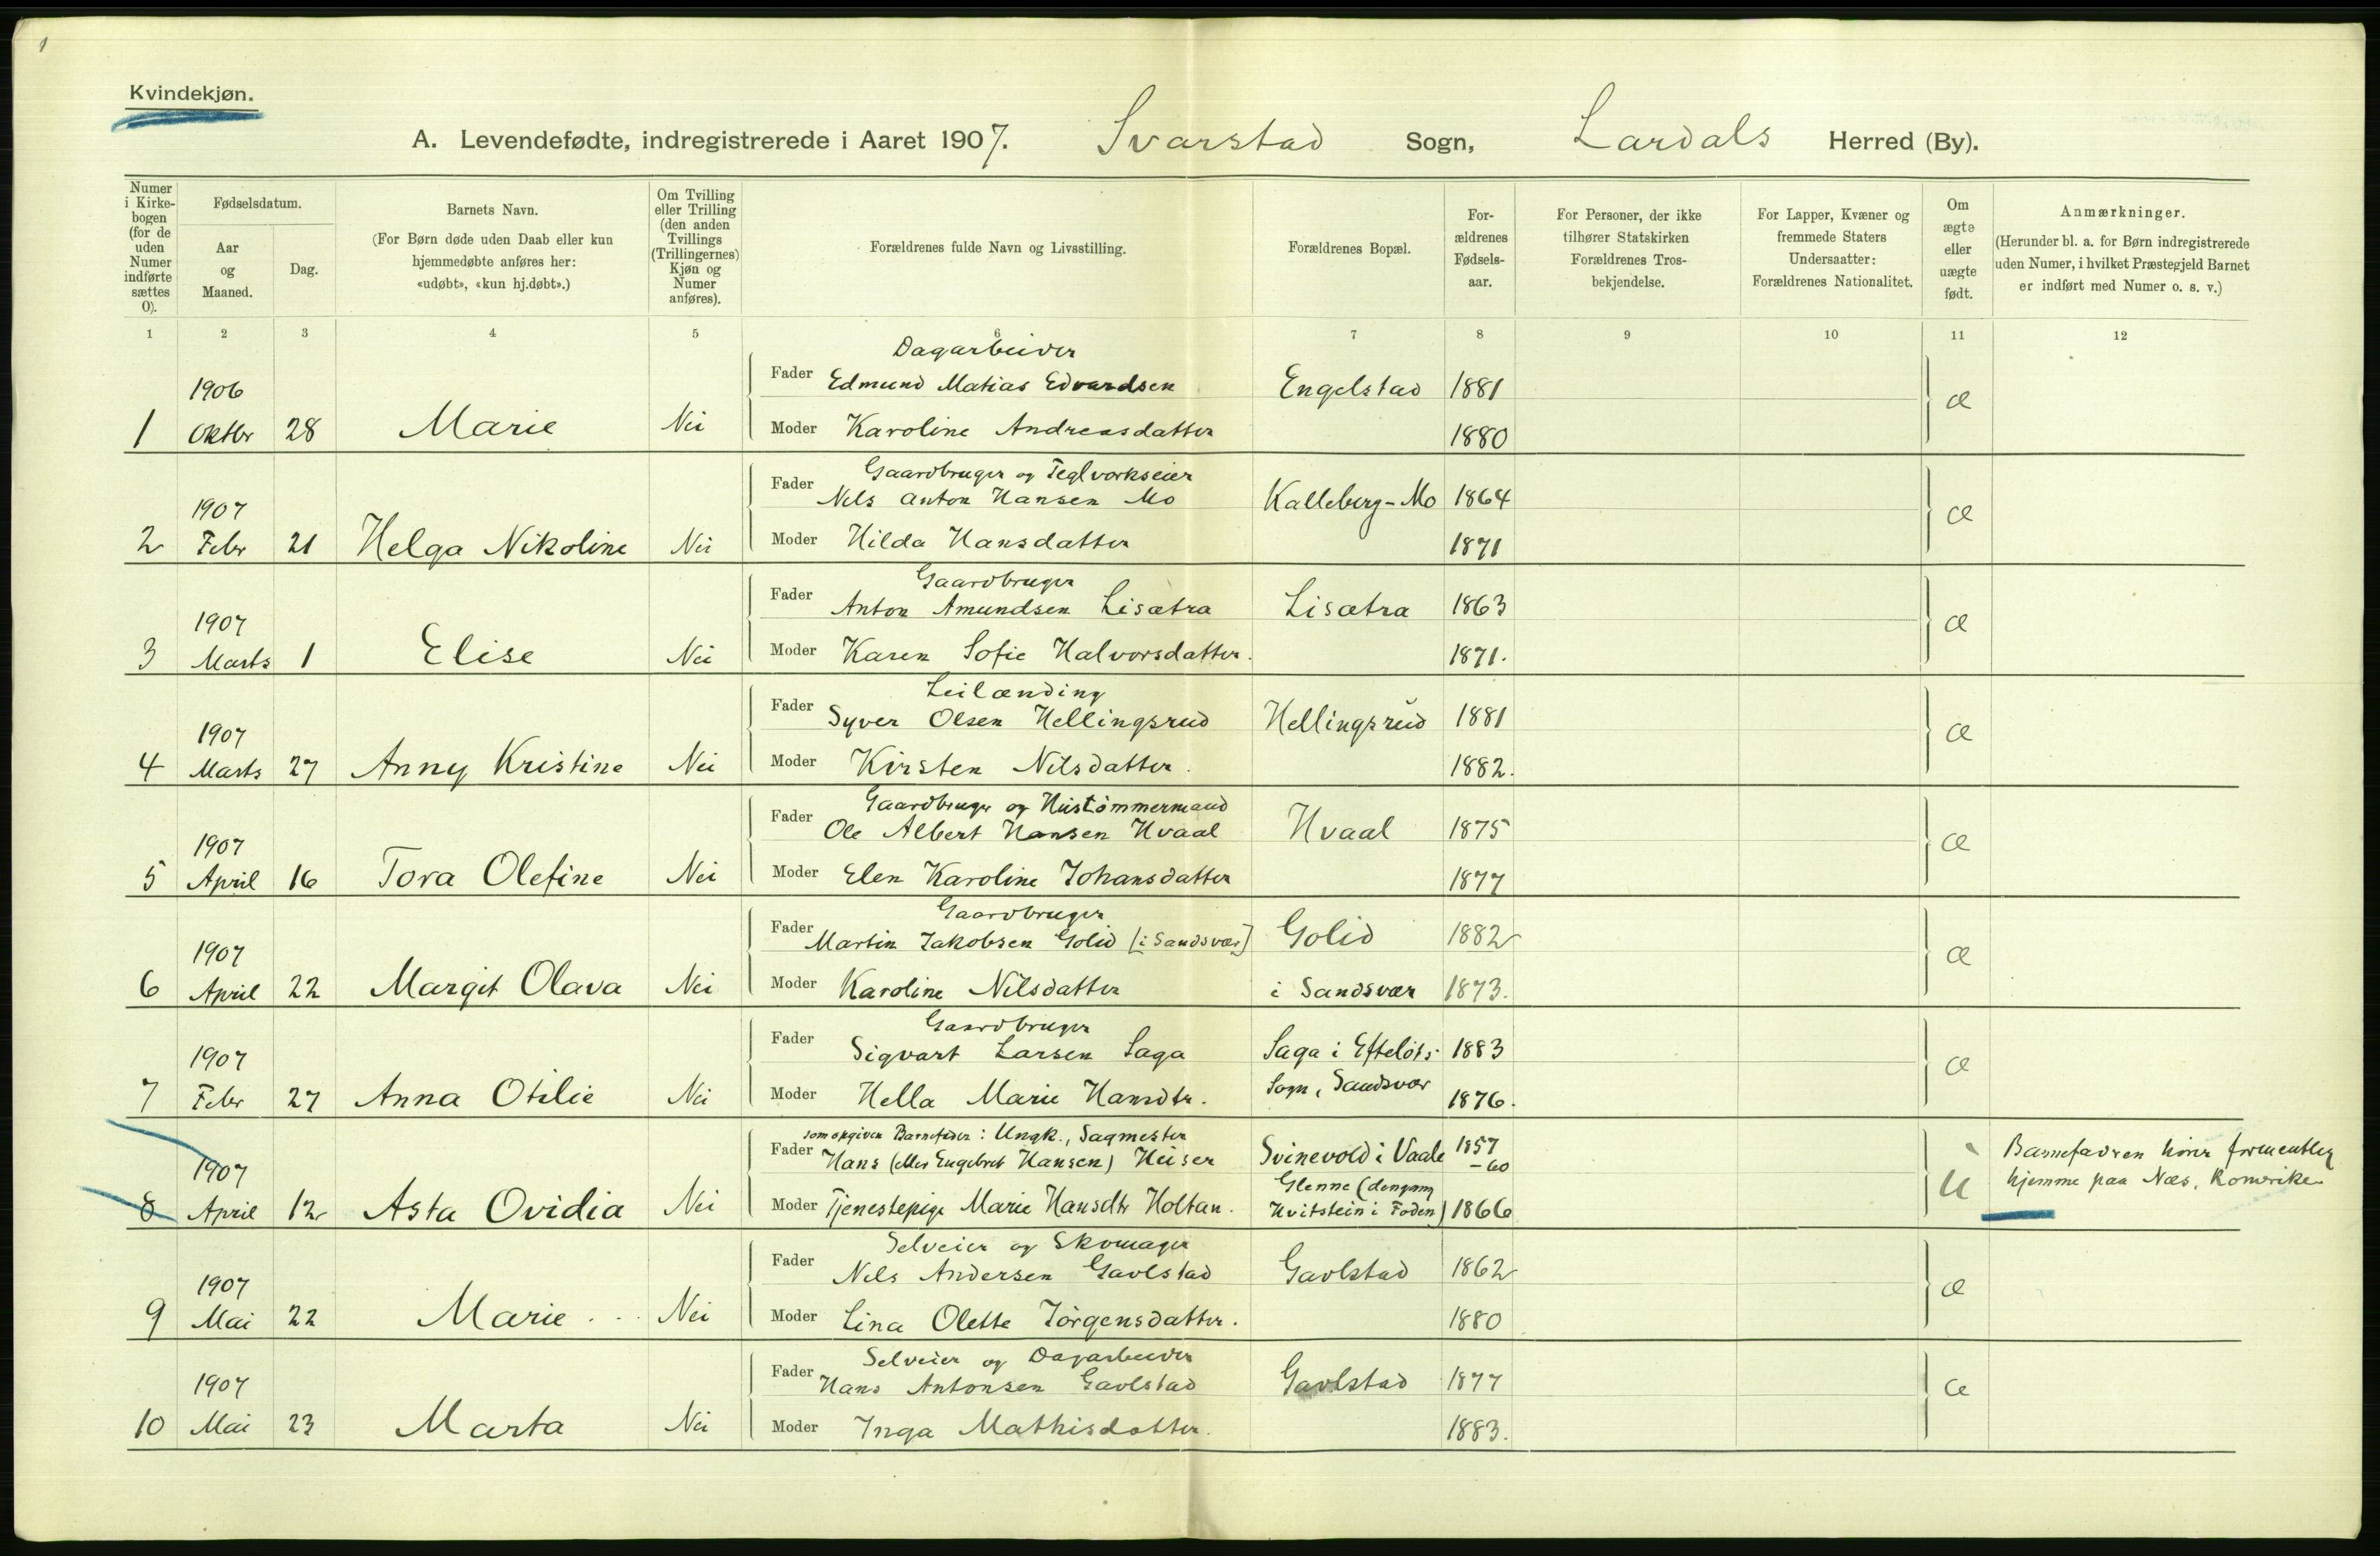 1
Kvindekjøn.
A. Levendefødte, indregistrerede i Aaret 1907. Svarstad Sogn, Lardals Herred (By).
Numer i Kirke-bogen (for de uden Numer indførte sættes 0).
Fødselsdatum.
Aar og Maaned.
Dag.
Barnets Navn.
(For Børn døde uden Daab eller kun hjemmedøbte anføres her: «udøbt», «kun hj.døbt».)
Om Tvilling eller Trilling (den anden Tvillings (Trillingernes) Kjøn og Numer anføres).
Forældrenes fulde Navn og Livsstilling.
Forældrenes Bopæl.
For-ældrenes Fødsels-aar.
For Personer, der ikke tilhører Statskirken Forældrenes Tros-bekjendelse.
For Lapper, Kvæner og fremmede Staters Undersaatter: Forældrenes Nationalitet.
Om ægte eller uægte født.
Anmærkninger.
(Herunder bl. a. for Børn indregistrerede uden Numer, i hvilket Præstegjeld Barnet er indført med Numer o. s. v.)
1 2 3 4 5 6 7 8 9 10 11 12
Dagarbeider
1906 Fader Edmund Matias Edvardsen Engelstad 1881 æ
1 Oktbr 28 Marie Nei Moder Karoline Andreasdatter 1880
Gaardbruger og Teglverkseier
1907 Fader Nils Anton Hansen Mo Kalleberg-Mo 1864 æ
2 Febr 21 Helga Nikoline Nei Moder Hilda Hansdatter 1871
Gaardbruger
1907 Fader Anton Amundsen Lisætra Lisætra 1863 æ
3 Marts 1 Elise Nei Moder Karen Sofie Halvorsdatter. 1871.
Leilænding
1907 Fader Syver Olsen Hellingsrud Hellingsrud 1881 æ
4 Marts 27 Anny Kristine Nei Moder Kirsten Nilsdatter. 1882.
Gaardbruger og Hustømmermand
1907 Fader Ole Albert Hansen Hvaal Hvaal 1875 æ
5 April 16 Tora Olefine Nei Moder Elen Karoline Johansdatter 1877
Gaardbruger
1907 Fader Martin Jakobsen Golid [i Sandsvær] Golid 1882 æ
6 April 22 Margit Olava Nei Moder Karoline Nilsdatter i Sandsvær 1873.
Gaardbruger
1907 Fader Sigvart Larsen Saga Saga i Efteløts 1883 æ
7 Febr 27 Anna Otilie Nei Moder Hella Marie Hansdtr. Sogn, Sandsvær 1876.
som opgiven Barnefader: Ungk., Sagmester
1907 Fader Hans (eller Engebret Hansen) Heiser Svinevold i Vaale 1857-60 Barnefadren hører formentlig
8 April 12 Asta Ovidia Nei Moder Tjenestepige Marie Hansdtr Holtan. Glenne (dengang Hvitstein i Foden) 1866 u hjemme paa Næs, Romerike
Selveier og Skomager
1907 Fader Nils Andersen Gavlstad Gavlstad 1862 æ
9 Mai 22 Marie Nei Moder Lina Olette Jørgensdatter. 1880
Selveier og Dagarbeider
1907 Fader Hans Antonsen Gavlstad Gavlstad 1877 æ
10 Mai 23 Marta Nei Moder Inga Mathisdatter. 1883.